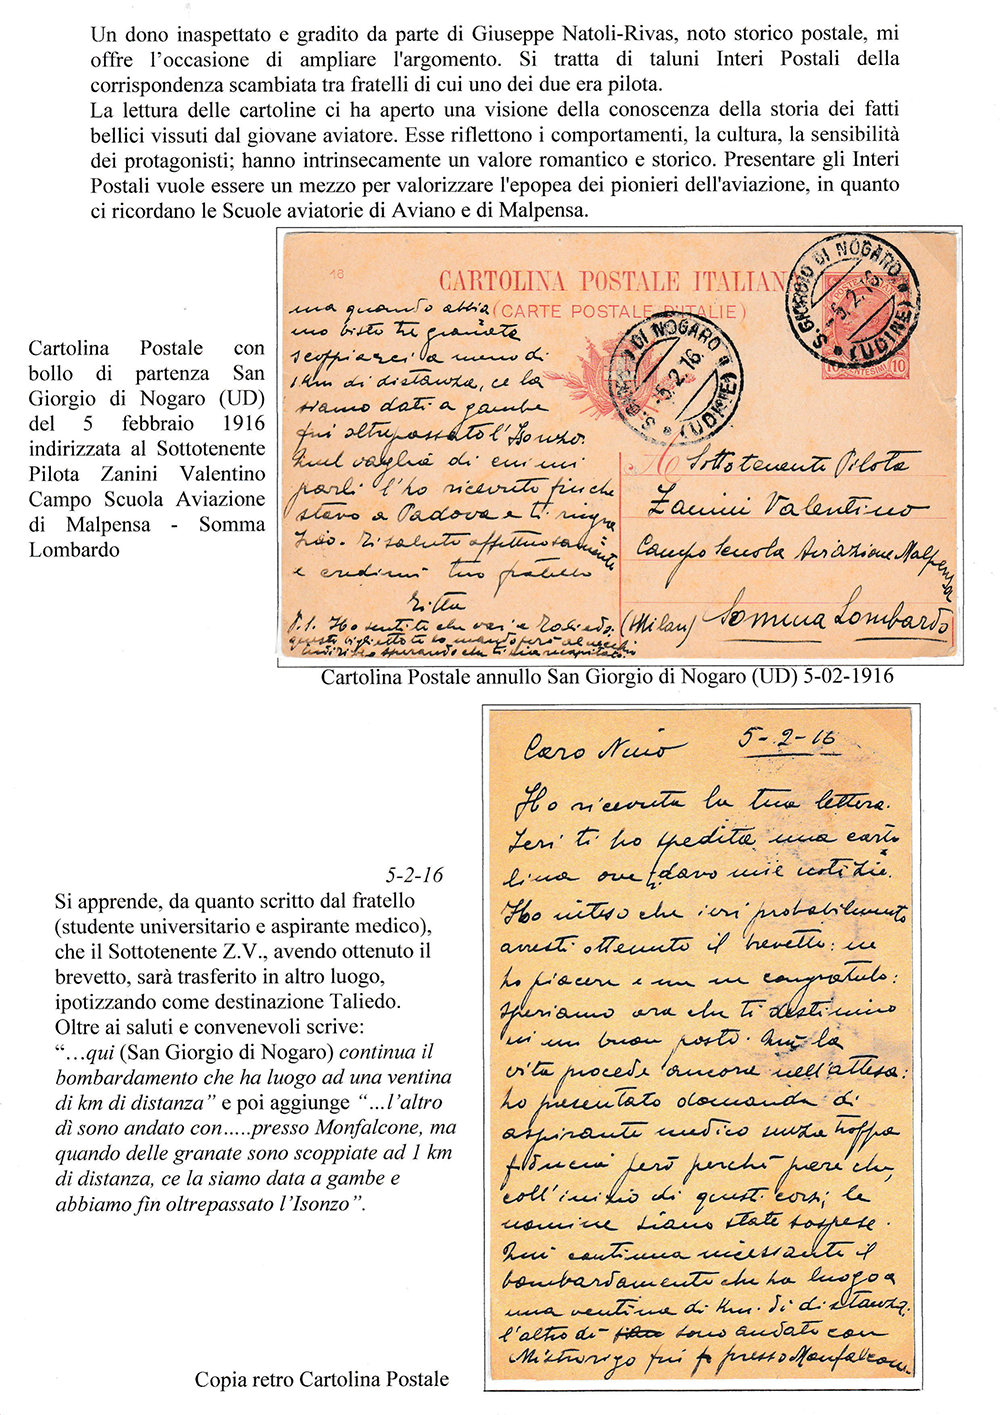 Un dono inaspettato e gradito da parte di Giuseppe Natoli-Rivas, noto storico postale, mi
offre l’occasione di ampliare l'argomento. Si tratta di taluni Interi Postali della
corrispondenza scambiata tra fratelli di cui uno dei due era pilota.
La lettura delle cartoline ci ha aperto una visione della conoscenza della storia dei fatti
bellici vissuti dal giovane aviatore. Esse riflettono i comportamenti, la cultura, la sensibilità
dei protagonisti; hanno intrinsecamente un valore romantico e storico. Presentare gli Interi
Postali vuole essere un mezzo per valorizzare l'epopea dei pionieri dell'aviazione, in quanto
ci ricordano le Scuole aviatorie di Aviano e di Malpensa.
Cartolina Postale con
bollo di partenza San
Giorgio di Nogaro (UD)
del 5 febbraio 1916
indirizzata al Sottotenente
Pilota Zanini Valentino
Campo Scuola Aviazione
di Malpensa - Somma
Lombardo
16
CARTOLINA POSTALE ITALIAN
(CARTE POSTALE D'ITALIE)
S. GIORGIO DI NOGARO
-5.2.16
(UDINE)
S. GIORGIO DI NOGARO
-5.2.16
(UDINE)
10 CENTESIMI 10
ma quando abbia
mo visto tre granate
scoppiarci a meno di
1 km di distanza, ce la
siamo dati a gambe
fin oltrepassato l'Isonzo.
Quel vaglia di cui mi
parli l'ho ricevuto finche
stavo a Padova e ti ringra
zio. Ti saluto affettuosamente
e credimi tuo fratello
P.S. Ho sentito che vai a Taliedo:
questo biglietto te lo mando però al vecchio
indirizzo sperando che ti sia recapitato.
A Sottotenente Pilota
Zanini Valentino
Campo Scuola Aviazione Malpensa
(Milan) Somma Lombardo
Cartolina Postale annullo San Giorgio di Nogaro (UD) 5-02-1916
5-2-16
Si apprende, da quanto scritto dal fratello
(studente universitario e aspirante medico),
che il Sottotenente Z.V., avendo ottenuto il
brevetto, sarà trasferito in altro luogo,
ipotizzando come destinazione Taliedo.
Oltre ai saluti e convenevoli scrive:
“…qui (San Giorgio di Nogaro) continua il
bombardamento che ha luogo ad una ventina
di km di distanza” e poi aggiunge “...l’altro
dì sono andato con…..presso Monfalcone, ma
quando delle granate sono scoppiate ad 1 km
di distanza, ce la siamo data a gambe e
abbiamo fin oltrepassato l’Isonzo”.
Copia retro Cartolina Postale
Caro Nino 5-2-16
Ho ricevuta la tua lettera.
Ieri ti ho spedita una carto
lina ove davo mie notizie.
Ho inteso che ieri probabilmente
avresti ottenuto il brevetto: ne
ho piacere e me ne congratulo:
speriamo ora che ti destinino
in un buon posto. Qui la
vita procede ancora nell'attesa:
ho presentato domanda di
aspirante medico senza troppa
fiducia però perchè pare che,
coll'inizio di questi corsi, le
nomine siano state sospese.
Qui continua incessante il
bombardamento che ha luogo a
una ventina di Km. di distanza:
l'altro dì sono andato con
Mistrorigo fin presso Monfalcone